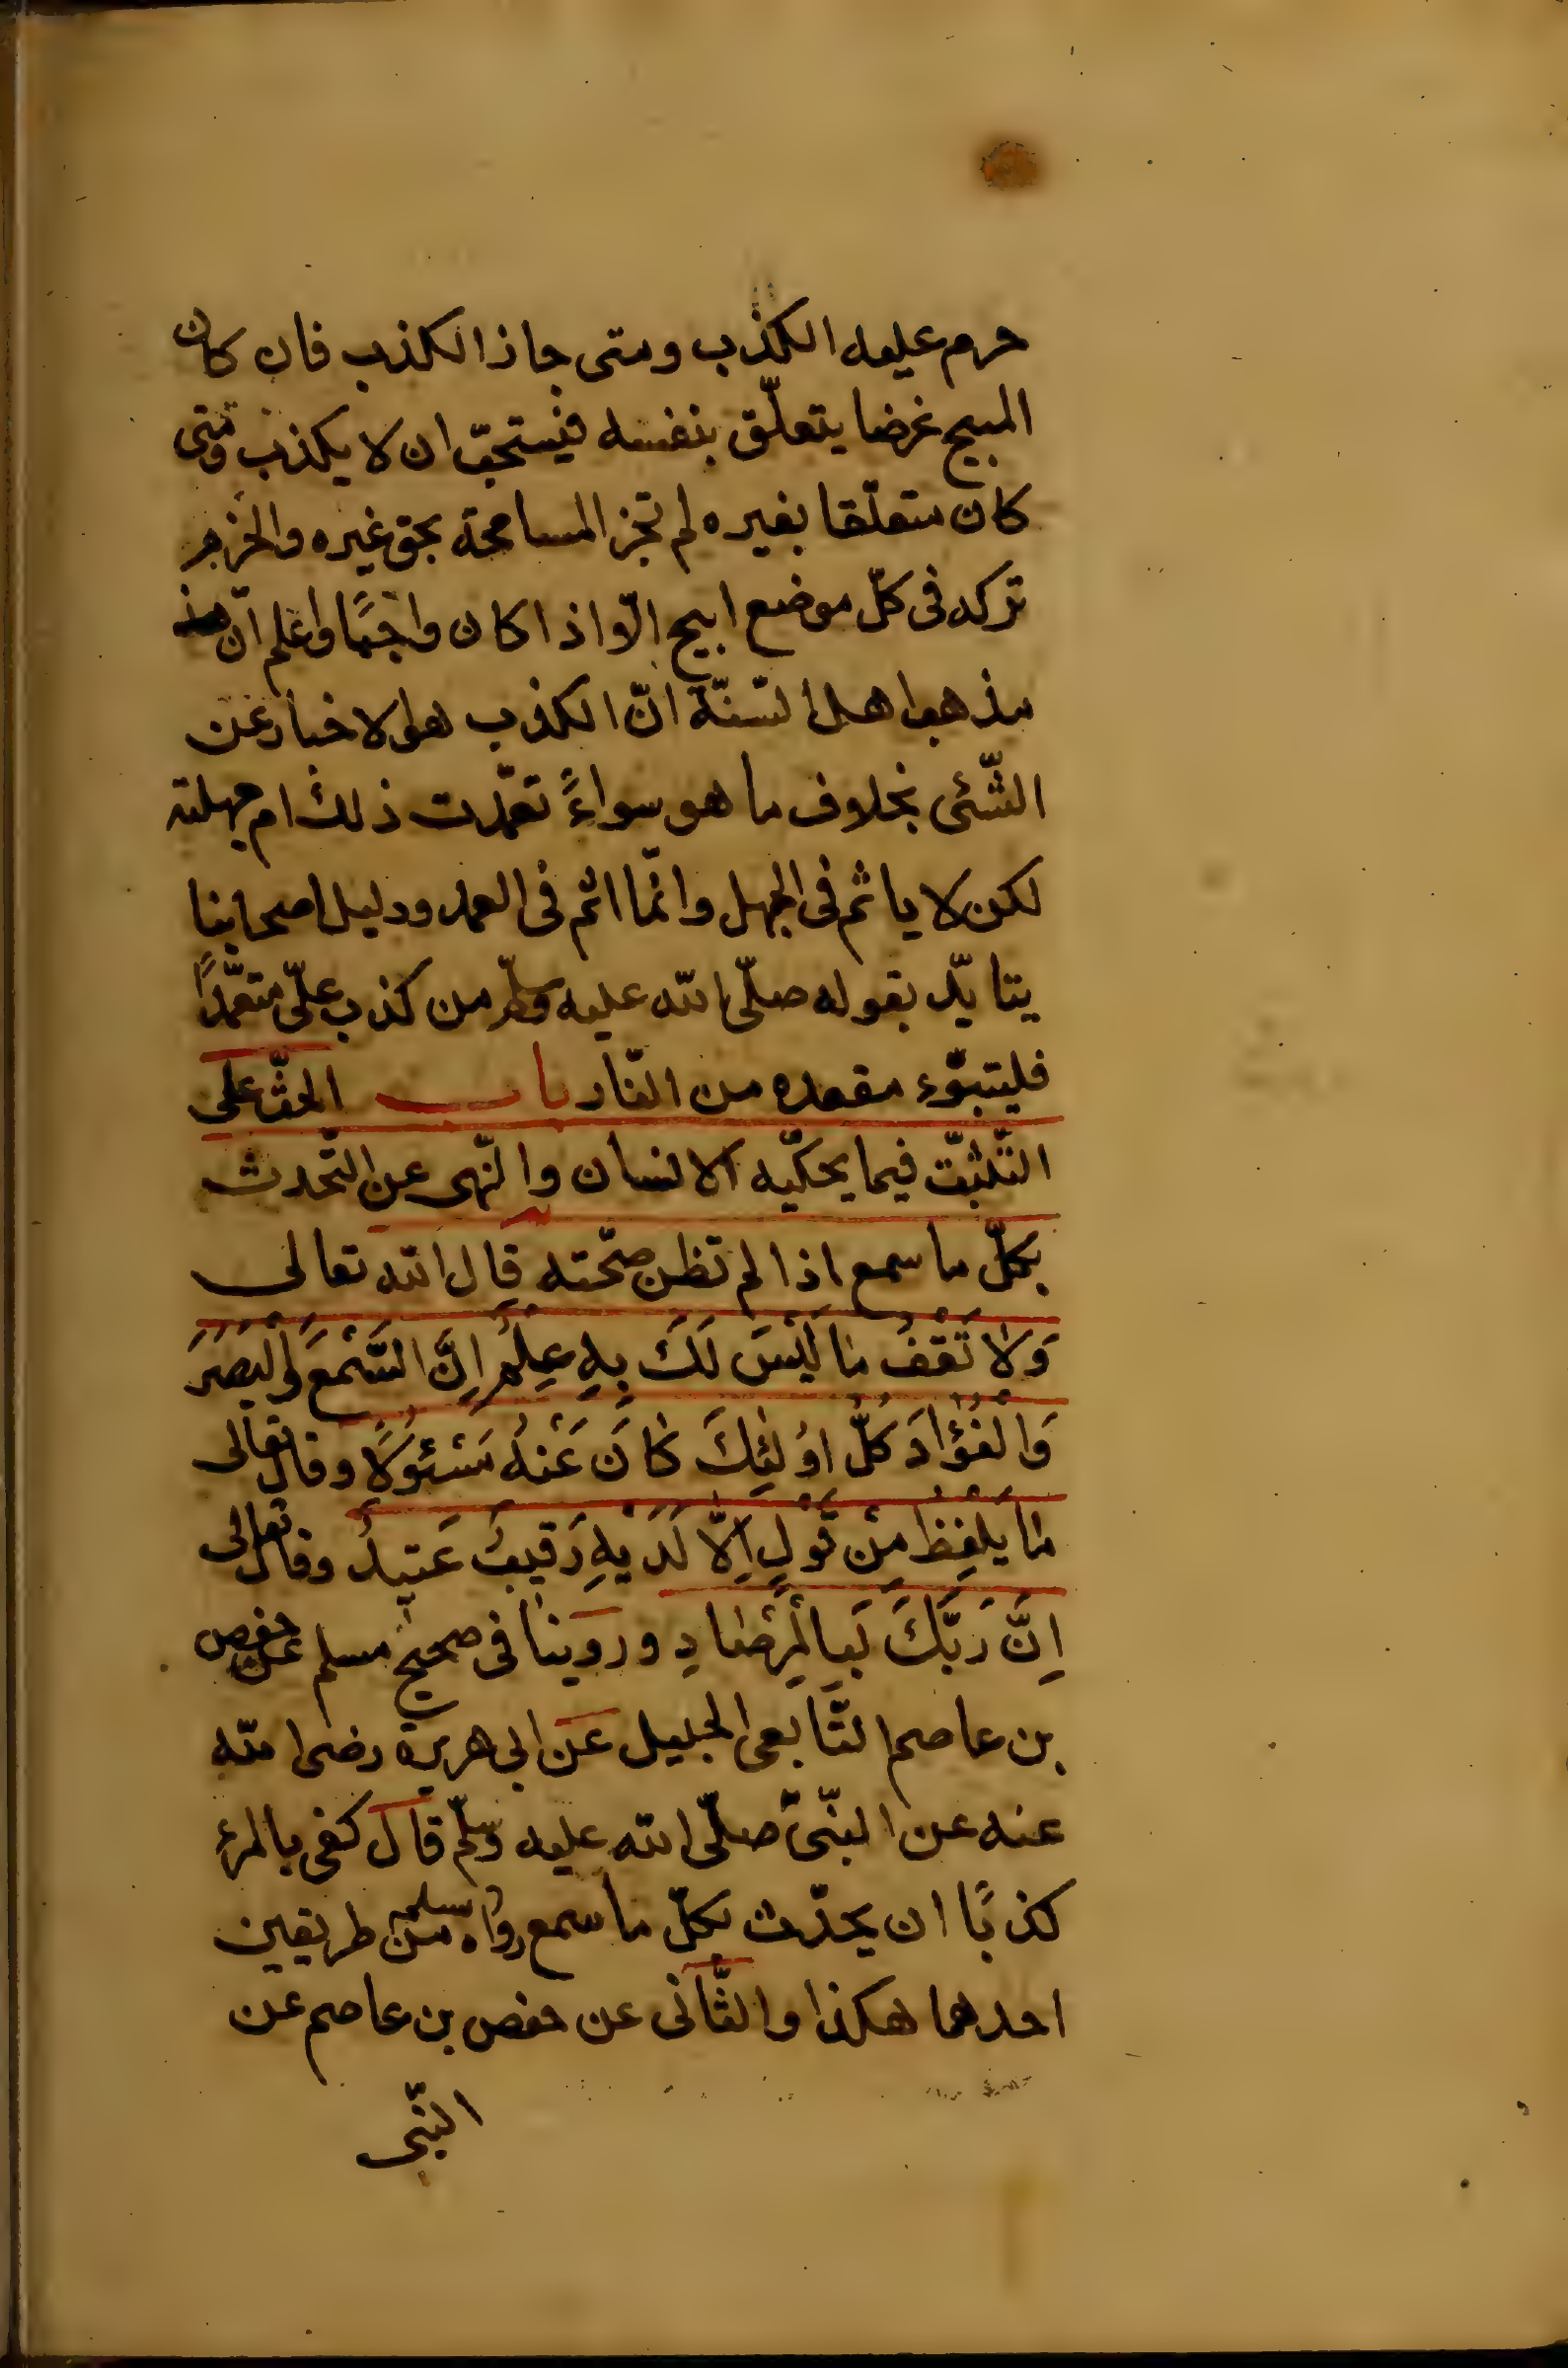 حرم عليه الكذب ومتى جاز الكذب فان كان
المبيح غرضا يتعلّق بنفسه فيستحبّ ان لا يكذب ومتى
كان متعلّقا بغيره لم تجز المسامحة بحق غيره والحزم
تركه فى كلّ موضع ابيح الّا اذا كان واجبًا واعلم انّ
مذهب اهل السّنّة انّ الكذب هو الاخبار عن
الشّئى بخلاف ما هو سواءً تعمّدت ذلك ام جهلته
لكن لا ياثم فى الجهل وانّما اثم فى العمد ودليل اصحابنا
يتايّد بقوله صلّى الله عليه وسلّم من كذب علىّ متعمّدًا
فليتبوّء مقعده من النّار باب الحثّ على
التّثبّت فيما يحكيّه الانسان والنّهى عن التّحدث
بكلّ ما سمع اذا لم تظن صحّته قال الله تعالى
وَلَا تَقْفُ مَا لَيْسَ لَكَ بِهِ عِلْمٌ اِنَّ السَّمْعَ وَالْبَصَرَ
وَالْفُؤَادَ كُلُّ اُولٰئِكَ كَانَ عَنْهُ مَسْئُولًا وقال تعالى
مَا يَلْفِظُ مِنْ قَوْلٍ اِلَّا لَدَيْهِ رَقِيبٌ عَتِيدٌ وقال تعالى
اِنَّ رَبَّكَ لَبِالْمِرْصَادِ وروينا فى صحيح مسلم عن حفص
بن عاصم التّابعى الجليل عن ابى هريرة رضى الله
عنه عن النّبىّ صلّى الله عليه وسلّم قال كفى بالمرء
كذبًا ان يحدّث بكلّ ما سمع رواه مسلم من طريقين
احدهما هكذا والثّانى عن حفص بن عاصم عن
النّبى